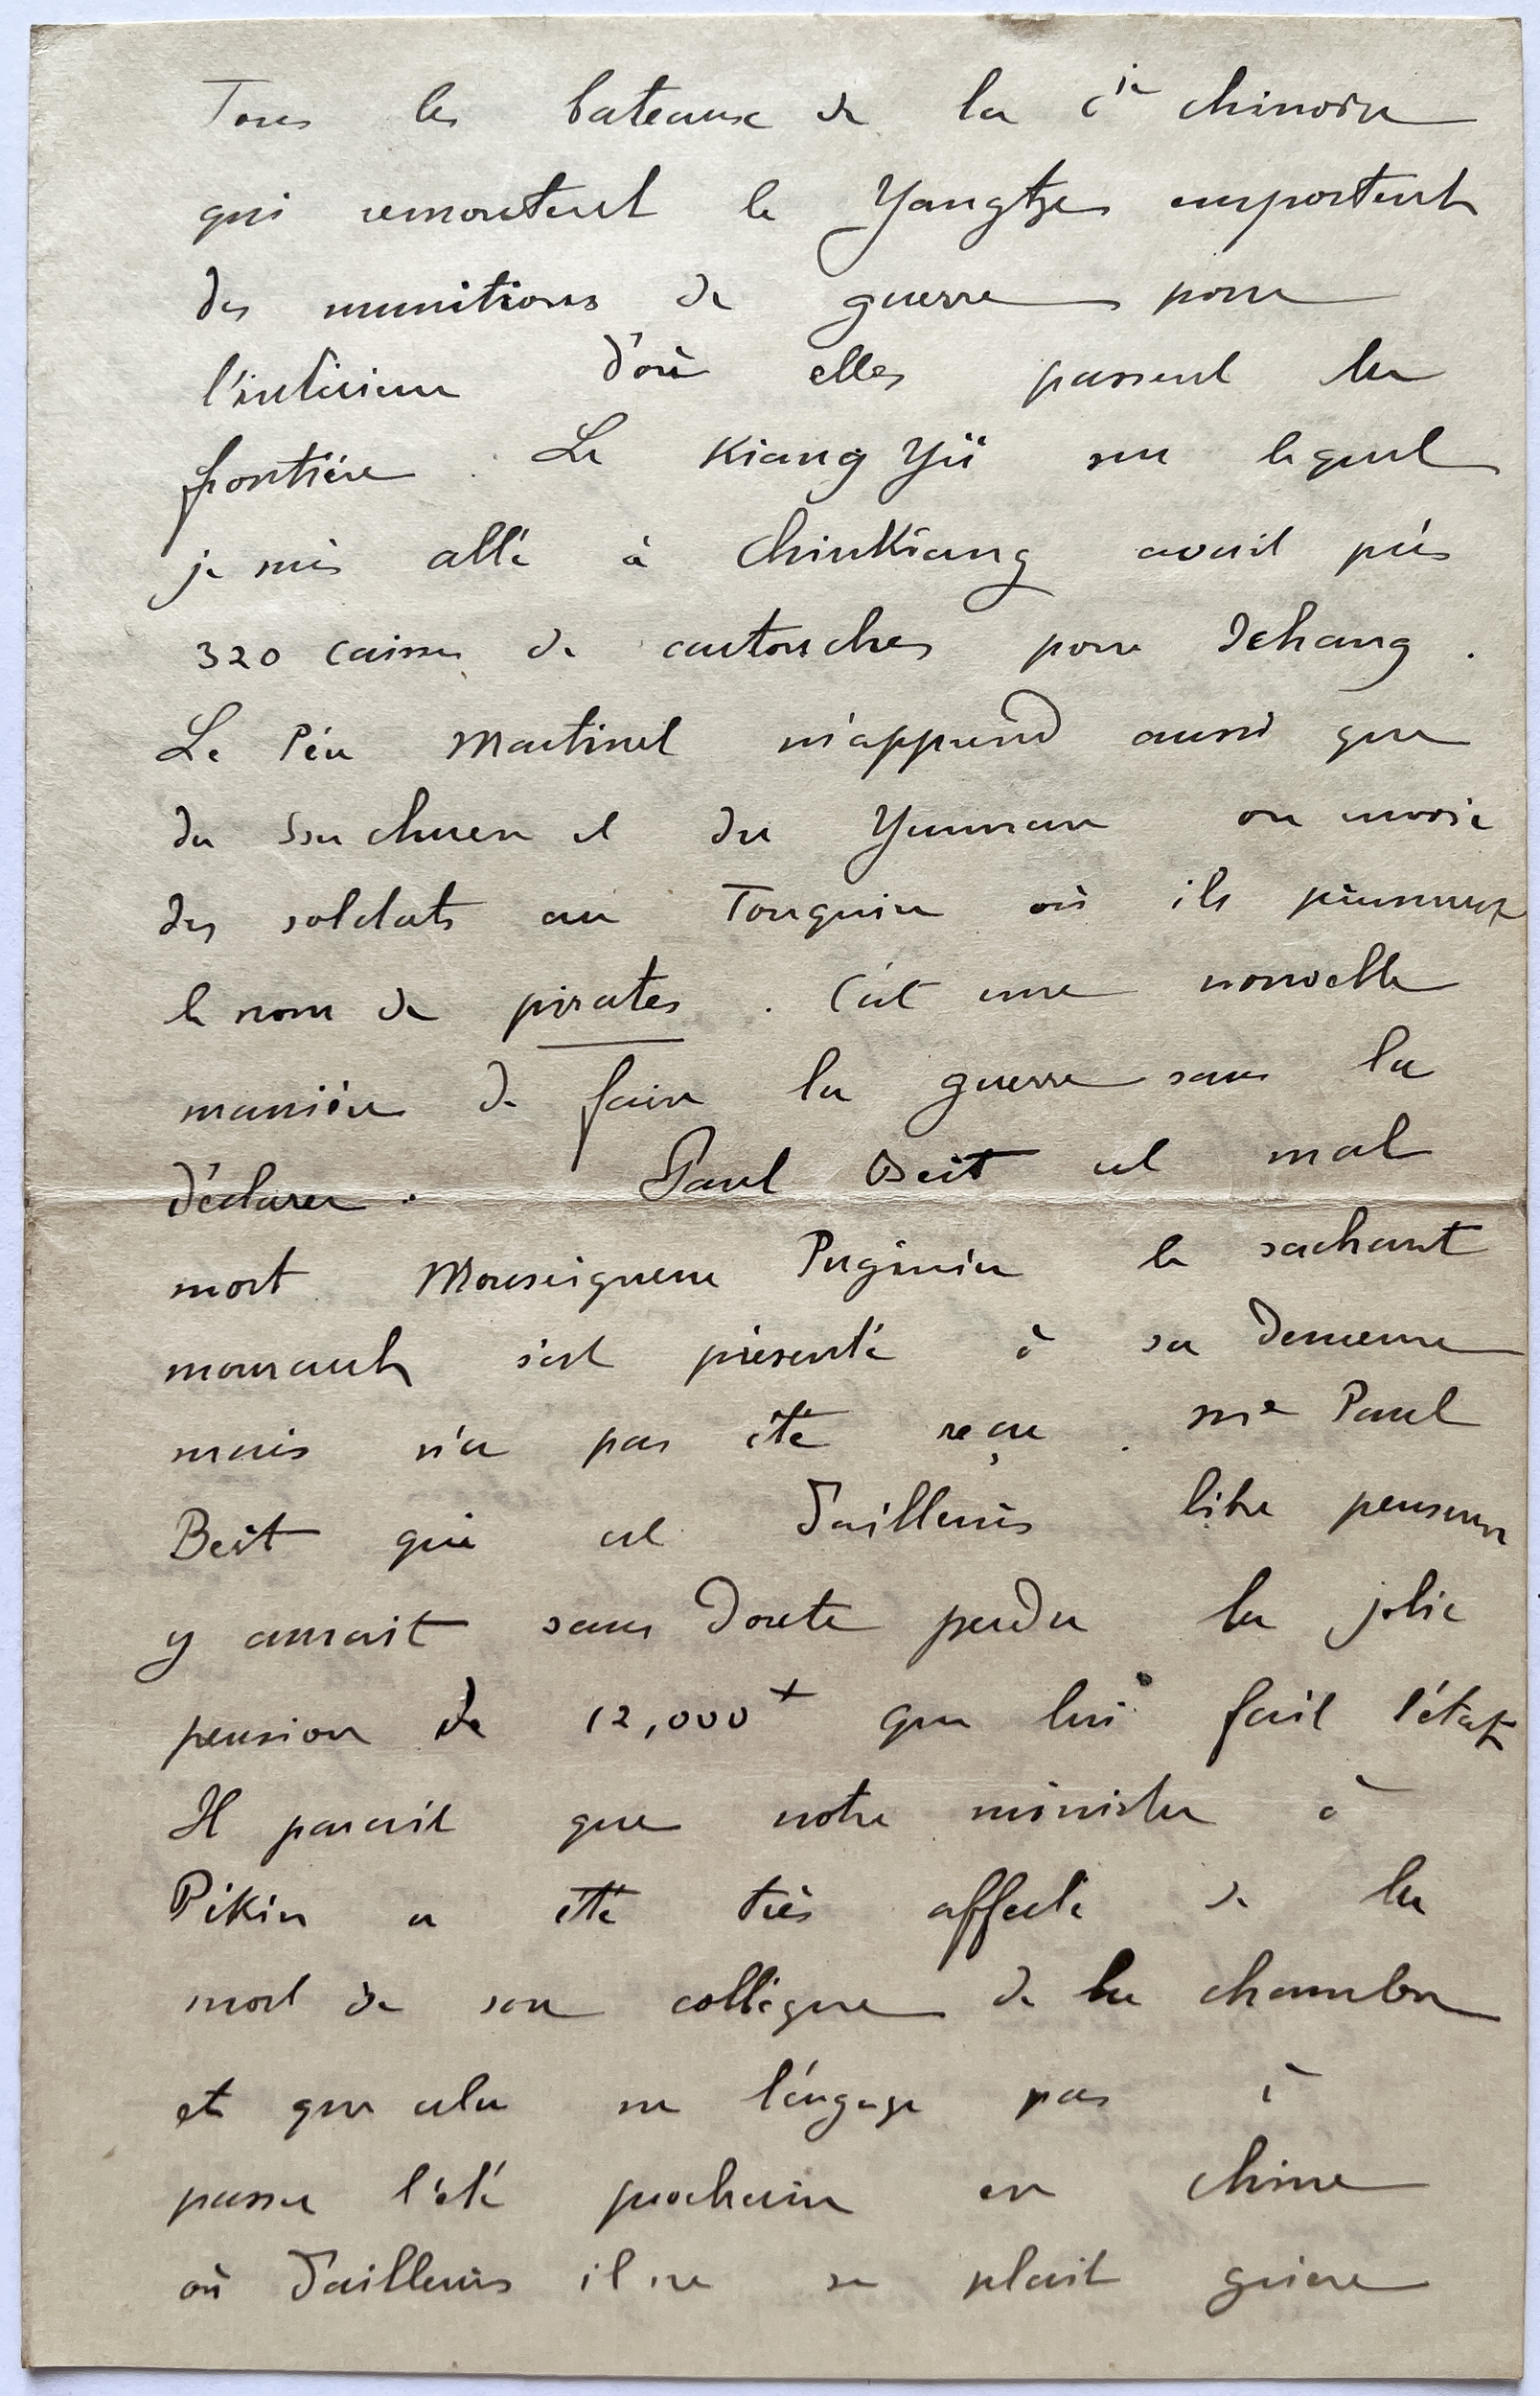 Tous les bateaux de la Cie chinoise
qui remontent le Yangtze emportent
des munitions de guerre pour
l'intérieur d'où elles passent la
frontière. Le Kiang Yü sur lequel
je suis allé à Chinkiang avait pris
320 caisses de cartouches pour Ichang.
Le Père Martinet m'apprend aussi que
du Ssu chuen et du Yunnan on envoie
des soldats au Tonquin où ils prennent
le nom de pirates. C'est une nouvelle
manière de faire la guerre sans la
déclarer. Paul Bert est mal
mort Monseigneur Puginier le sachant
mourant s'est présenté à sa demeure
mais n'a pas été reçu. Me Paul
Bert qui est d'ailleurs libre penseur
y aurait sans doute perdu la jolie
pension de 12,000 que lui fait l'état
Il parait que notre ministre à
Pékin a été très affecté de la
mort de son collègue de la chambre
et que cela ne l'engage pas à
passer l'été prochain en Chine
où d'ailleurs il ne se plait guère